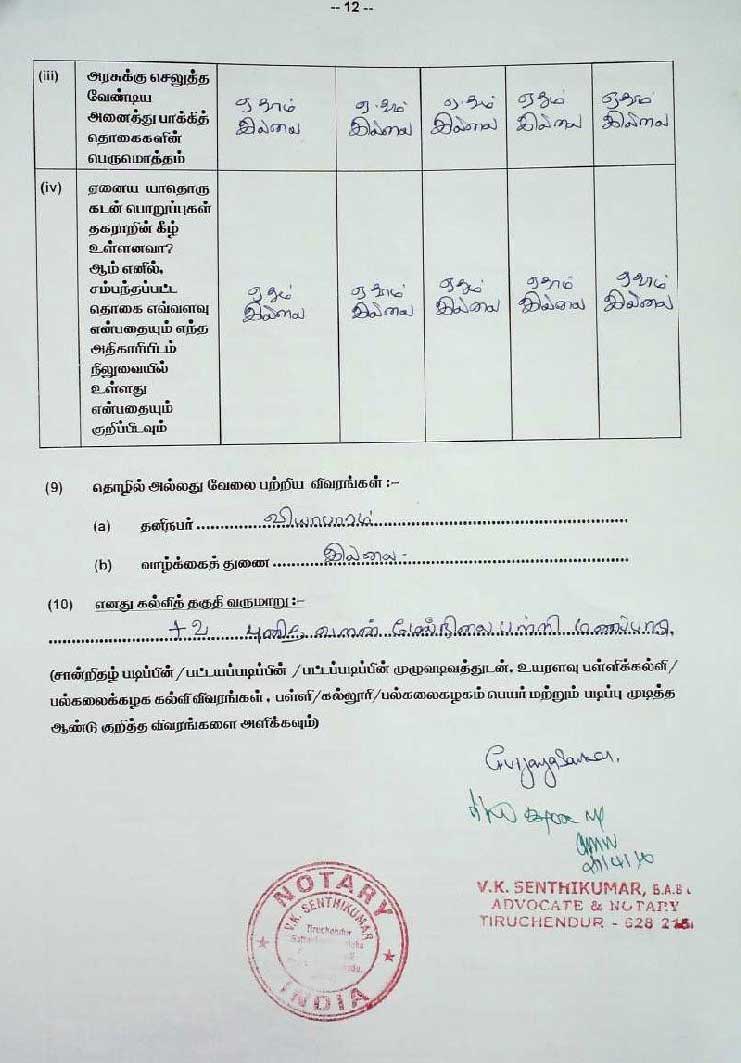 -- 12 --
(iii) அரசுக்கு செலுத்த
வேண்டிய
அனைத்து பாக்கித்
தொகைகளின்
பெருமொத்தம்
ஏதும் ஏதும் ஏதும் ஏதும் ஏதும்
இல்லை இல்லை இல்லை இல்லை இல்லை
(iv) ஏனைய யாதொரு
கடன் பொறுப்புகள்
தகராறின் கீழ்
உள்ளனவா?
ஆம் எனில்,
சம்பந்தப்பட்ட
தொகை எவ்வளவு
என்பதையும் எந்த
அதிகாரியிடம்
நிலுவையில்
உள்ளது
என்பதையும்
குறிப்பிடவும்
ஏதும் ஏதும் ஏதும் ஏதும் ஏதும்
இல்லை இல்லை இல்லை இல்லை இல்லை
(9) தொழில் அல்லது வேலை பற்றிய விவரங்கள் :--
(a) தனிநபர் வியாபாரம்
(b) வாழ்க்கைத் துணை இல்லை -
(10) எனது கல்வித் தகுதி வருமாறு :--
+2 புனித வளன் மேல்நிலை பள்ளி
(சான்றிதழ் படிப்பின் / பட்டயப்படிப்பின் / பட்டப்படிப்பின் முழுவடிவத்துடன், உயரளவு பள்ளிக்கல்வி/
பல்கலைக்கழக கல்வி விவரங்கள் , பள்ளி/கல்லூரி/பல்கலைகழகம் பெயர் மற்றும் படிப்பு முடித்த
ஆண்டு குறித்த விவரங்களை அளிக்கவும்)
V.K. SENTHIKUMAR, B.A.B.
ADVOCATE & NOTARY
TIRUCHENDUR - 628 215.
NOTARY
V.K. SENTHIKUMAR
Tiruchendur
INDIA